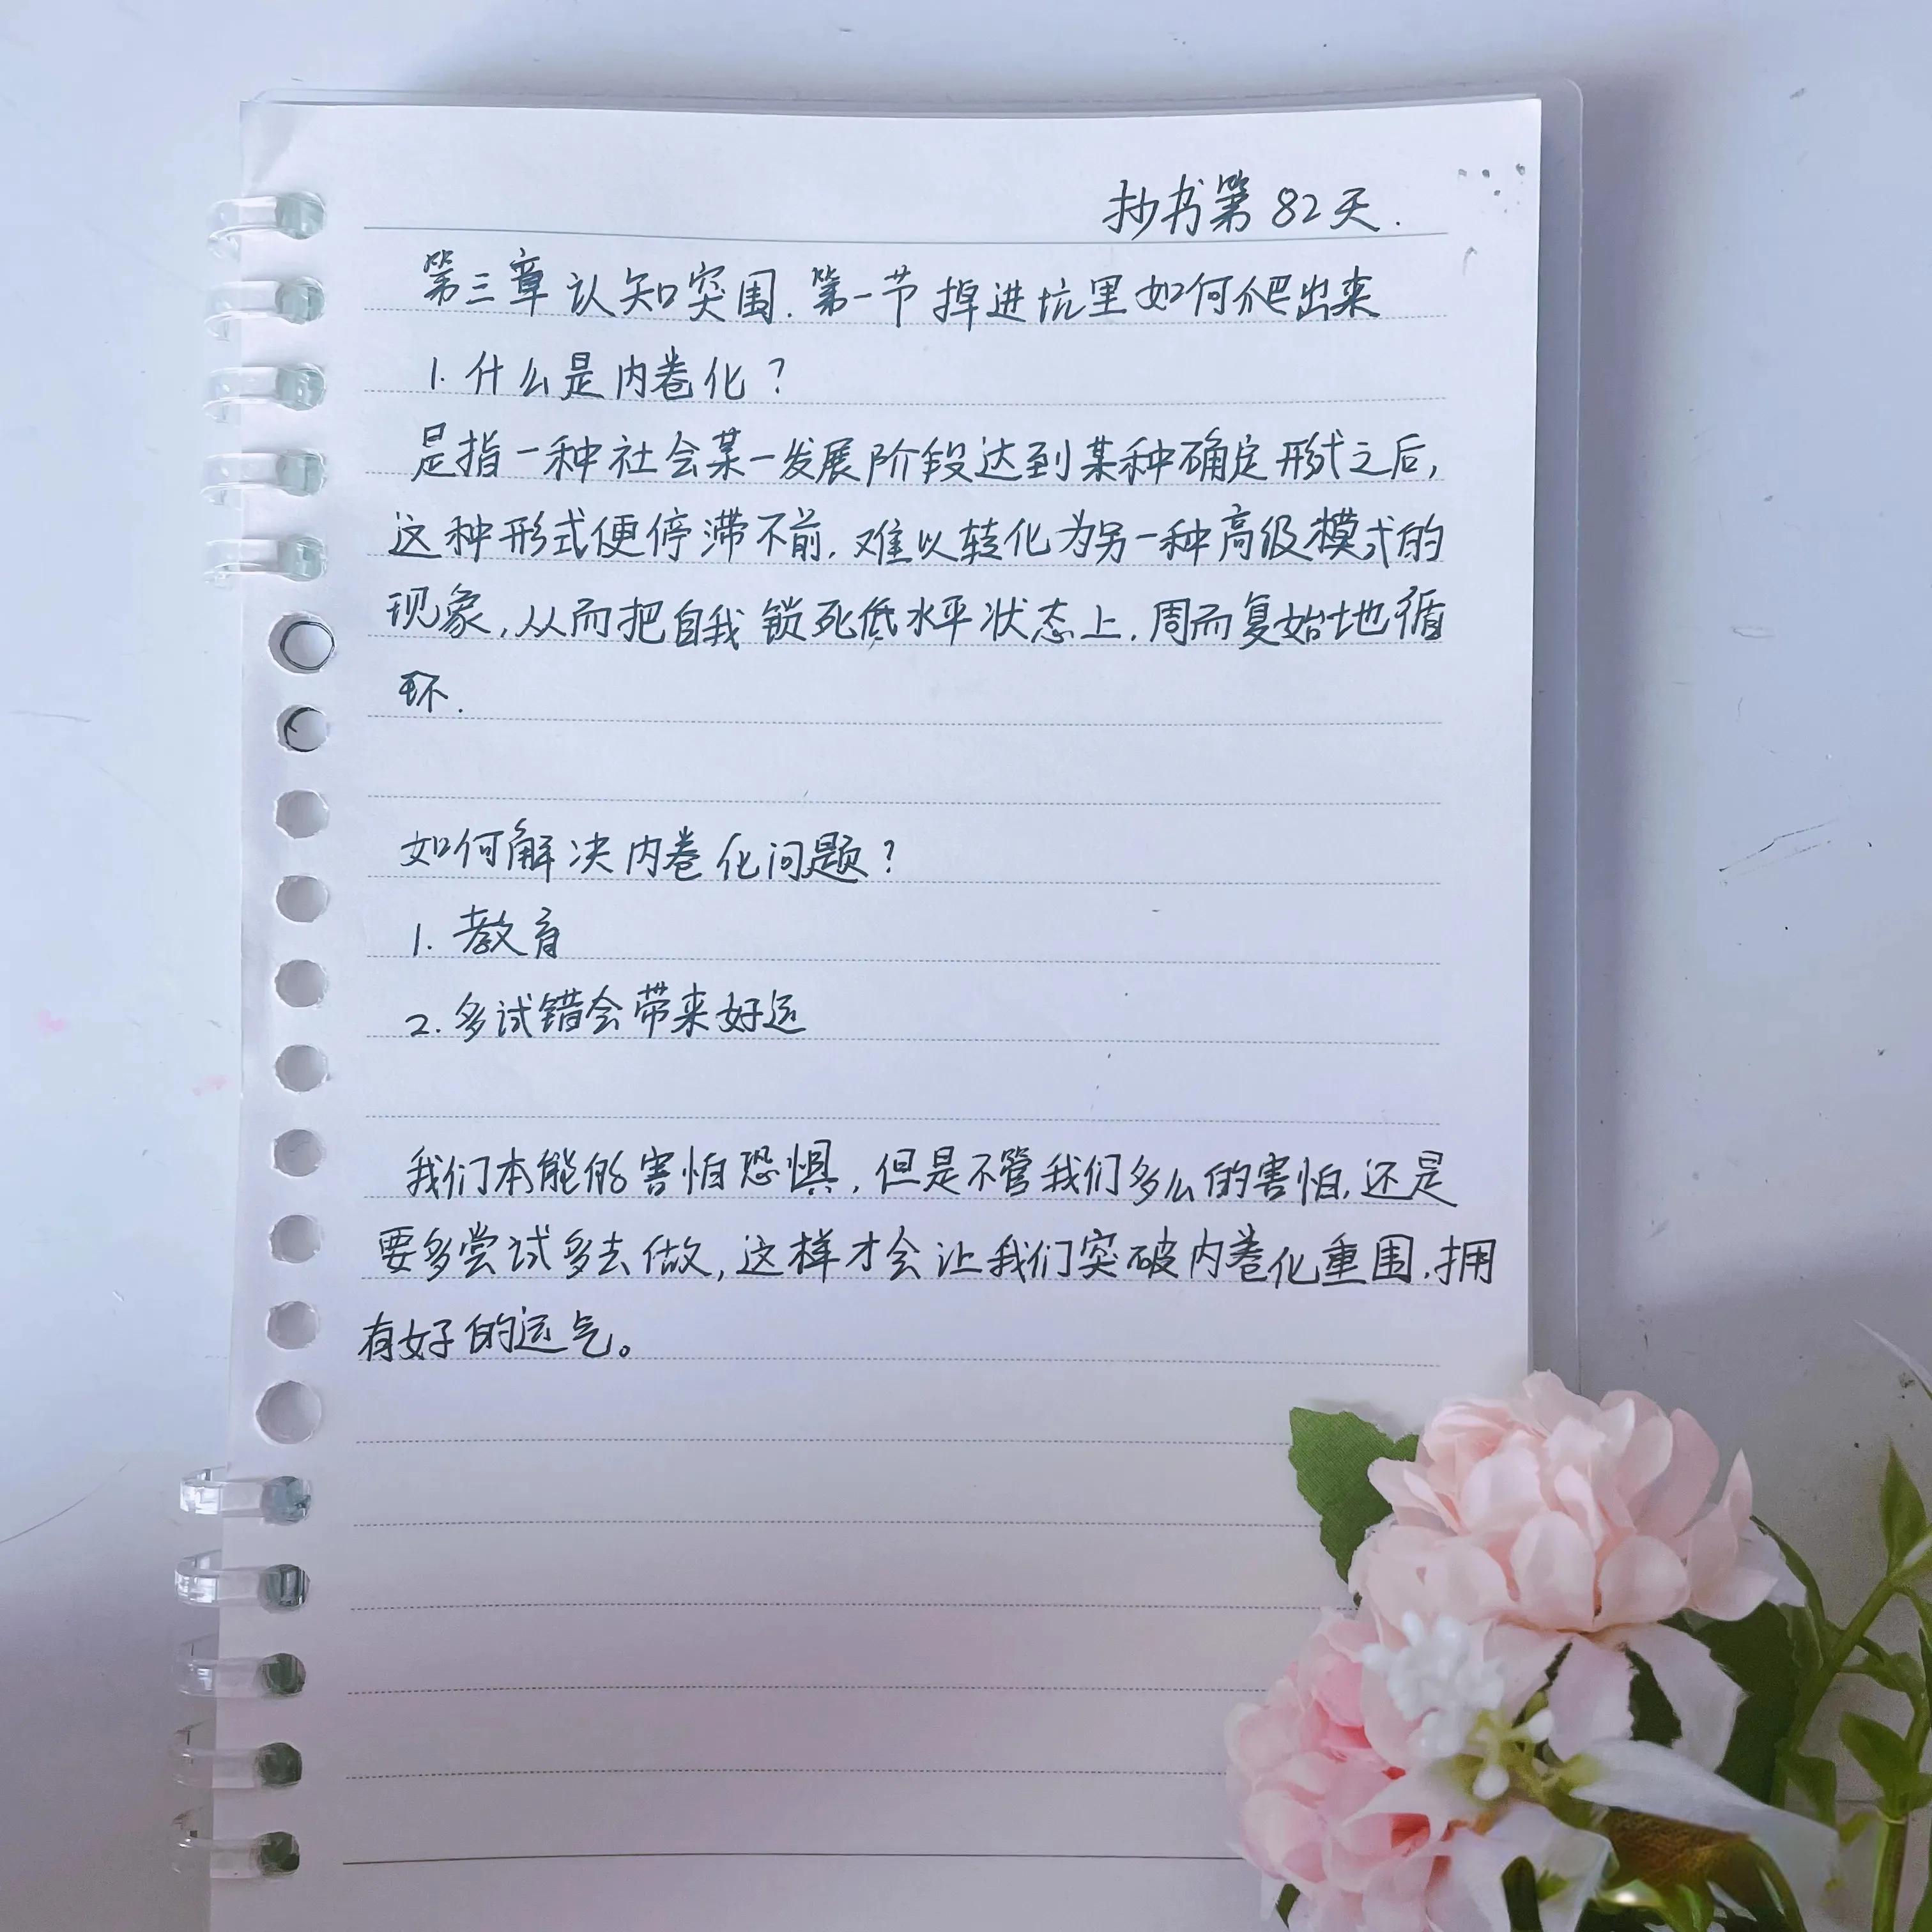 抄书第82天.
第三章认知突围.第一节掉进坑里如何爬出来
1.什么是内卷化?
是指一种社会某一发展阶段达到某种确定形式之后,
这种形式便停滞不前,难以转化为另一种高级模式的
现象,从而把自我锁死低水平状态上,周而复始地循
环.
如何解决内卷化问题?
1.教育
2.多试错会带来好运
我们本能的害怕恐惧,但是不管我们多么的害怕,还是
要多尝试多去做,这样才会让我们突破内卷化重围,拥
有好的运气。